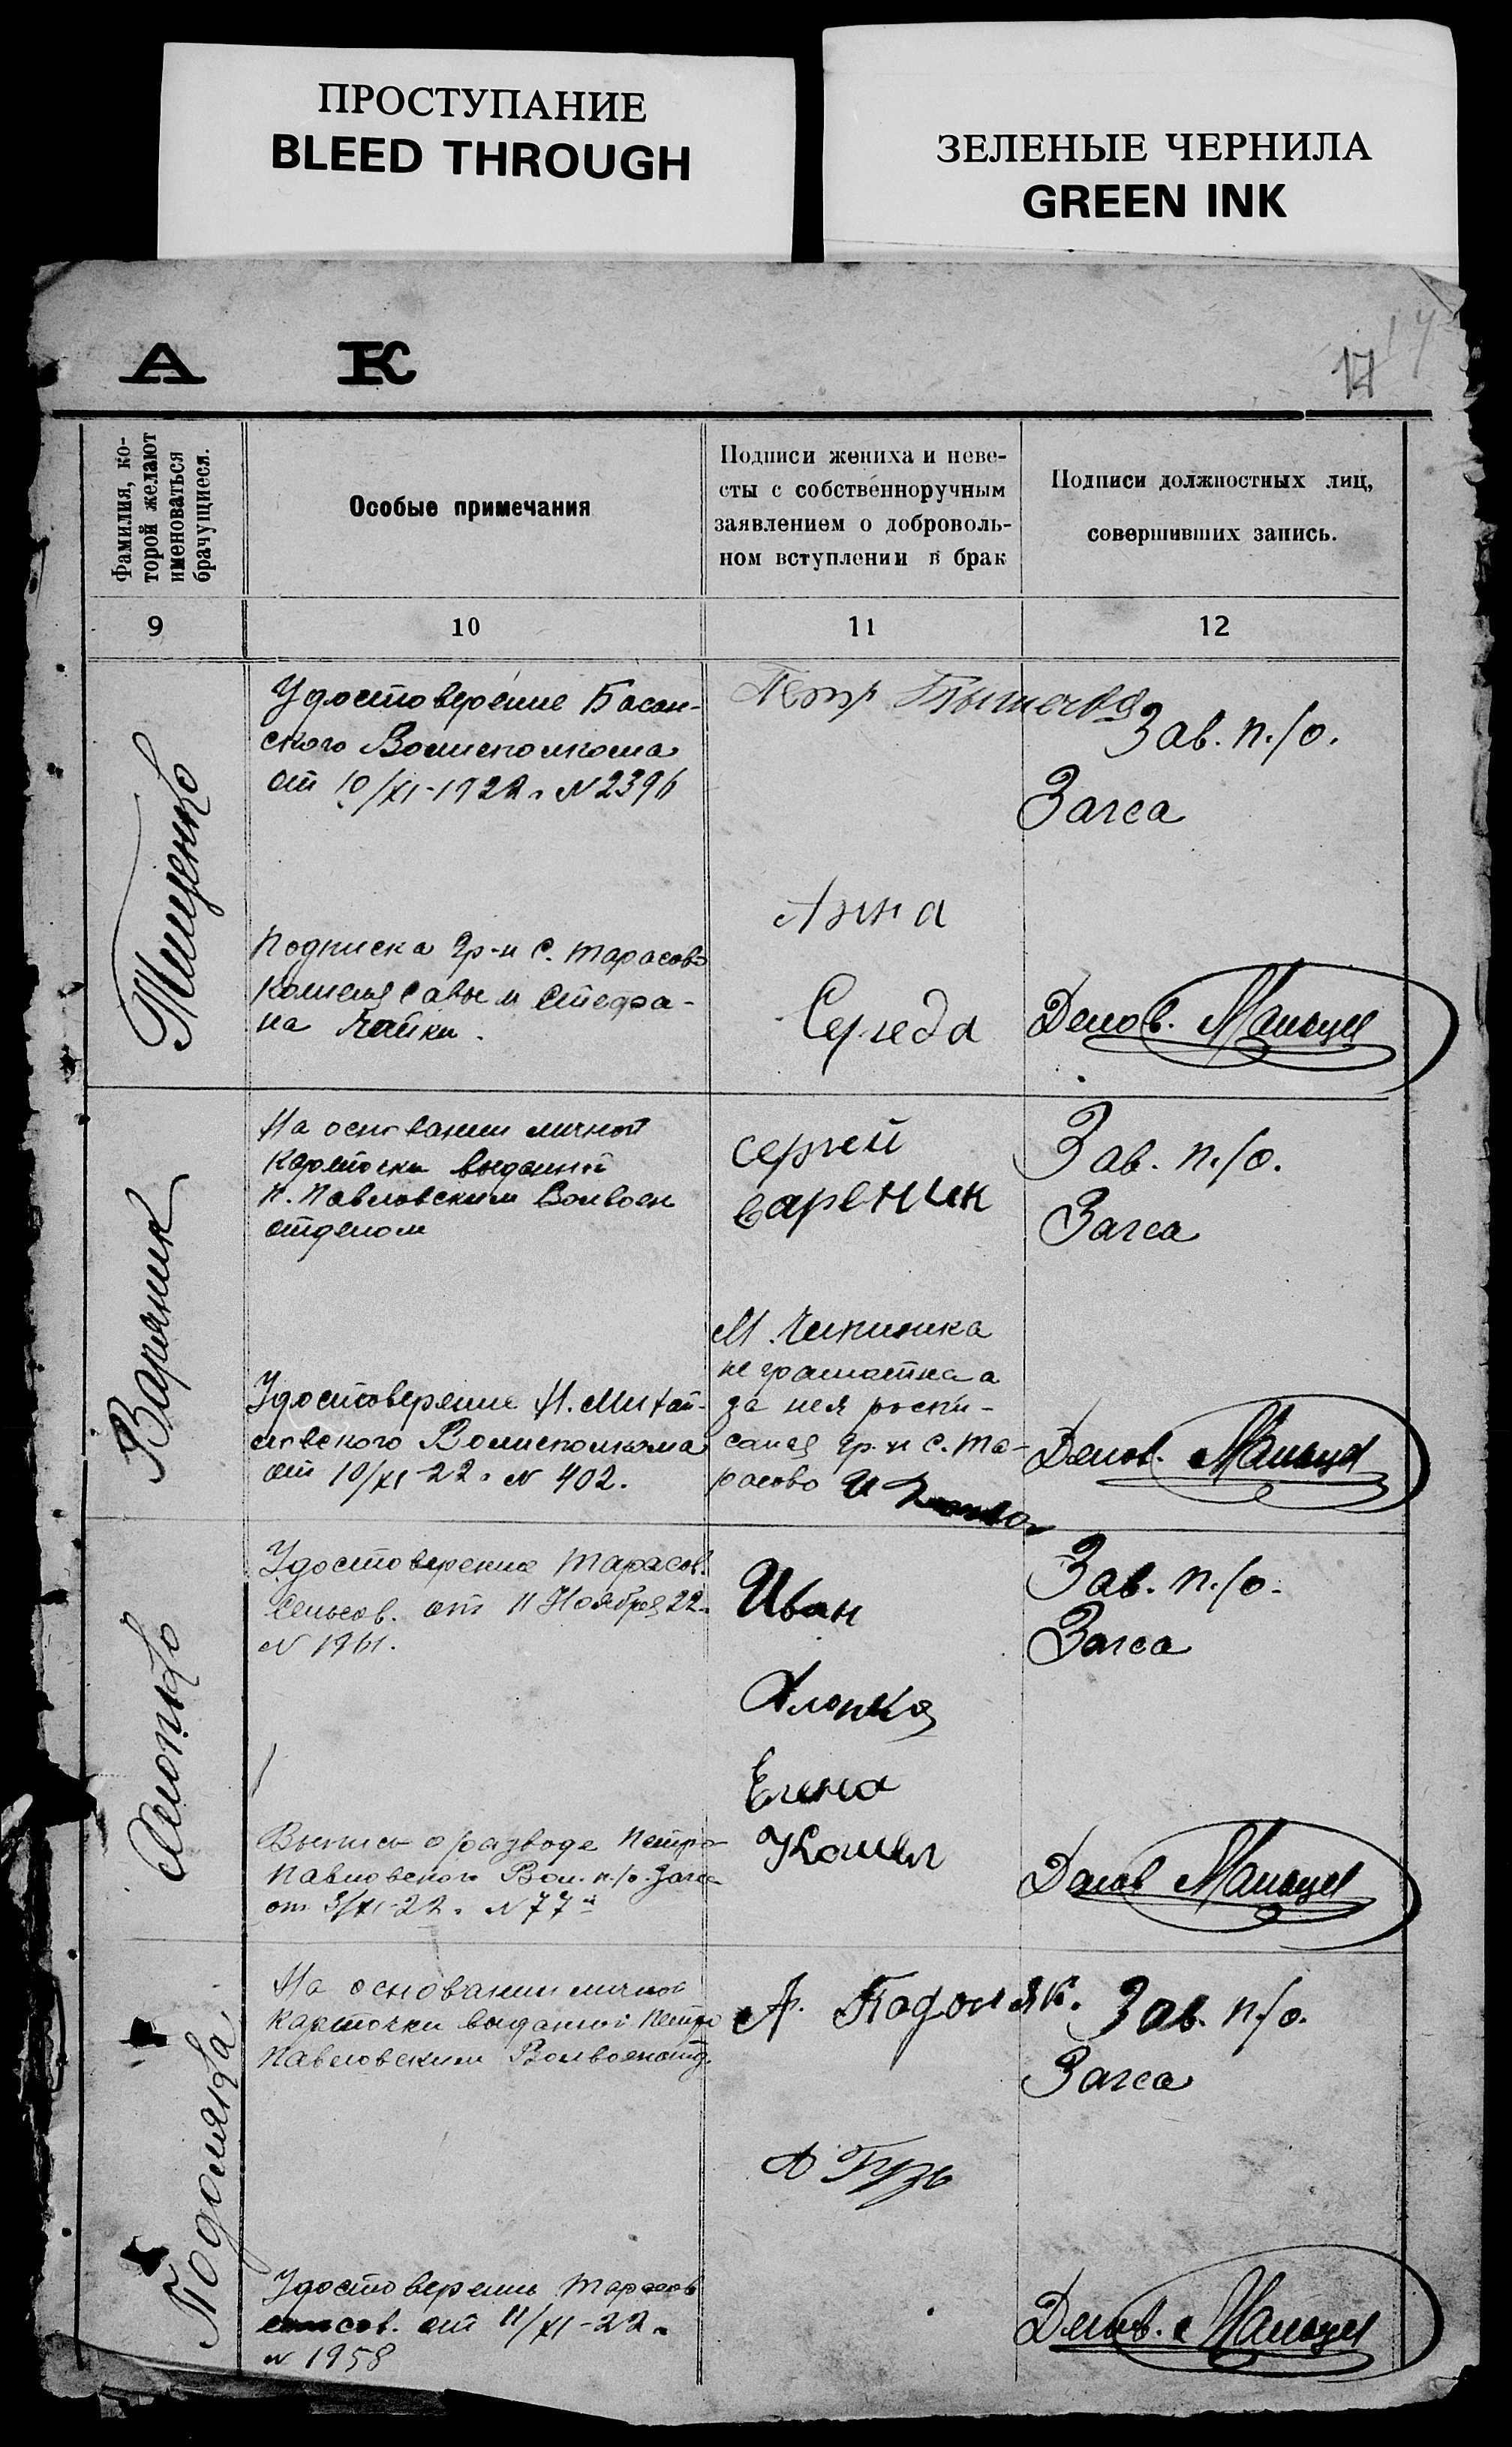 ПРОСТУПАНИЕ
BLEED THROUGH
ЗЕЛЕНЫЕ ЧЕРНИЛА
GREEN INK
17
А К
Фамилия, ко-
торой желают
именоваться
брачущиеся.
Особые примечания
Подписи жениха и неве-
сты с собственноручным
заявлением о доброволь-
ном вступлении в брак
Подписи должностных лиц,
совершивших запись.
9 10 11 12
Тищенко
Удостоверение Басан-
ского Волисполкома
от 10/XI-1922 г. N 2396
Подписка гр-н с. Тарасово
Савы и Стефа-
на Чайки.
Петр
Анна
Середа
Зав. п./о.
Загса
Делов.
Варяник
На основании личной
карточки выданной
П. Павловским Волвоен
отделом
Удостоверение Н. Михай-
ловского Волисполкома
от 10/XI-22 г. N 402.
сергей
вареник
М.
не грамотна а
за нея роспи-
сался гр-н с. Та-
расово И
Зав. п./о.
Загса
Делов.
Хлопко
Удостоверение Тарасов.
Сельсов. от 11 Ноября 22 г.
N 1961.
Выпись о разводе Петро
Павловского Вол. п./о. Загса
от 3/XI-22 г. N 77
Иван
Хлопко
Елена
Зав. п./о.
Загса
Делов
Подоляка
На основании личной
карточки выданной Петро
Павловским Волвоенотд.
Удостоверение Тарасов
сов. от 11/XI-22 г.
N 1958
А. Подоляк.
А Гузь
Зав. п/о.
Загса
Делов.